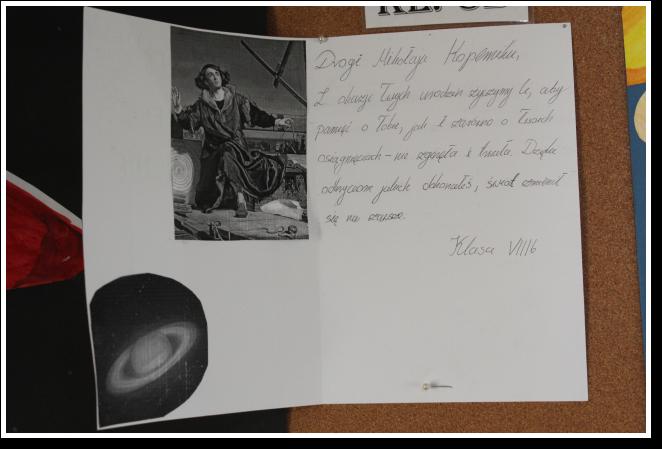 Drogi Mikołaju Koperniku,
Z okazji Twych urodzin życzymy Ci, aby
pamięć o Tobie, jak i zarówno o Twoich
osiągnięciach - nie zginęła i trwała. Dzięki
odkryciom jakich dokonałeś, świat zmienił
się na zawsze.
Klasa VIII6